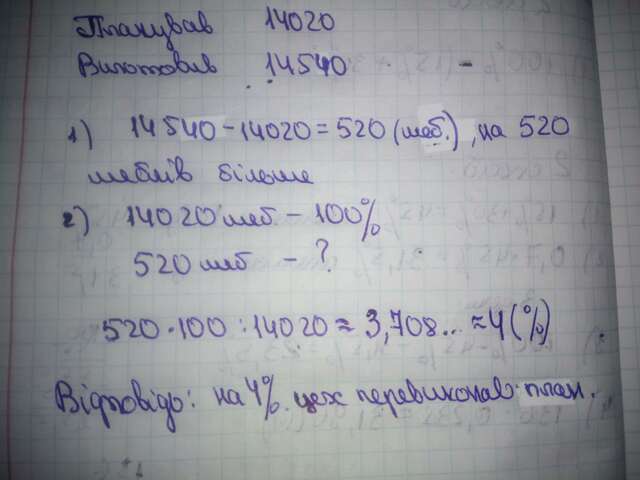 Планував 14020
Виготовив 14540 -
1) 14540-14020=520 (меб.), на 520
меблів більше
2) 14020 меб - 100%
520 меб - ?
520·100:14020≈3,708...≈4(%)
Відповідь: на 4% цех перевиконав план.